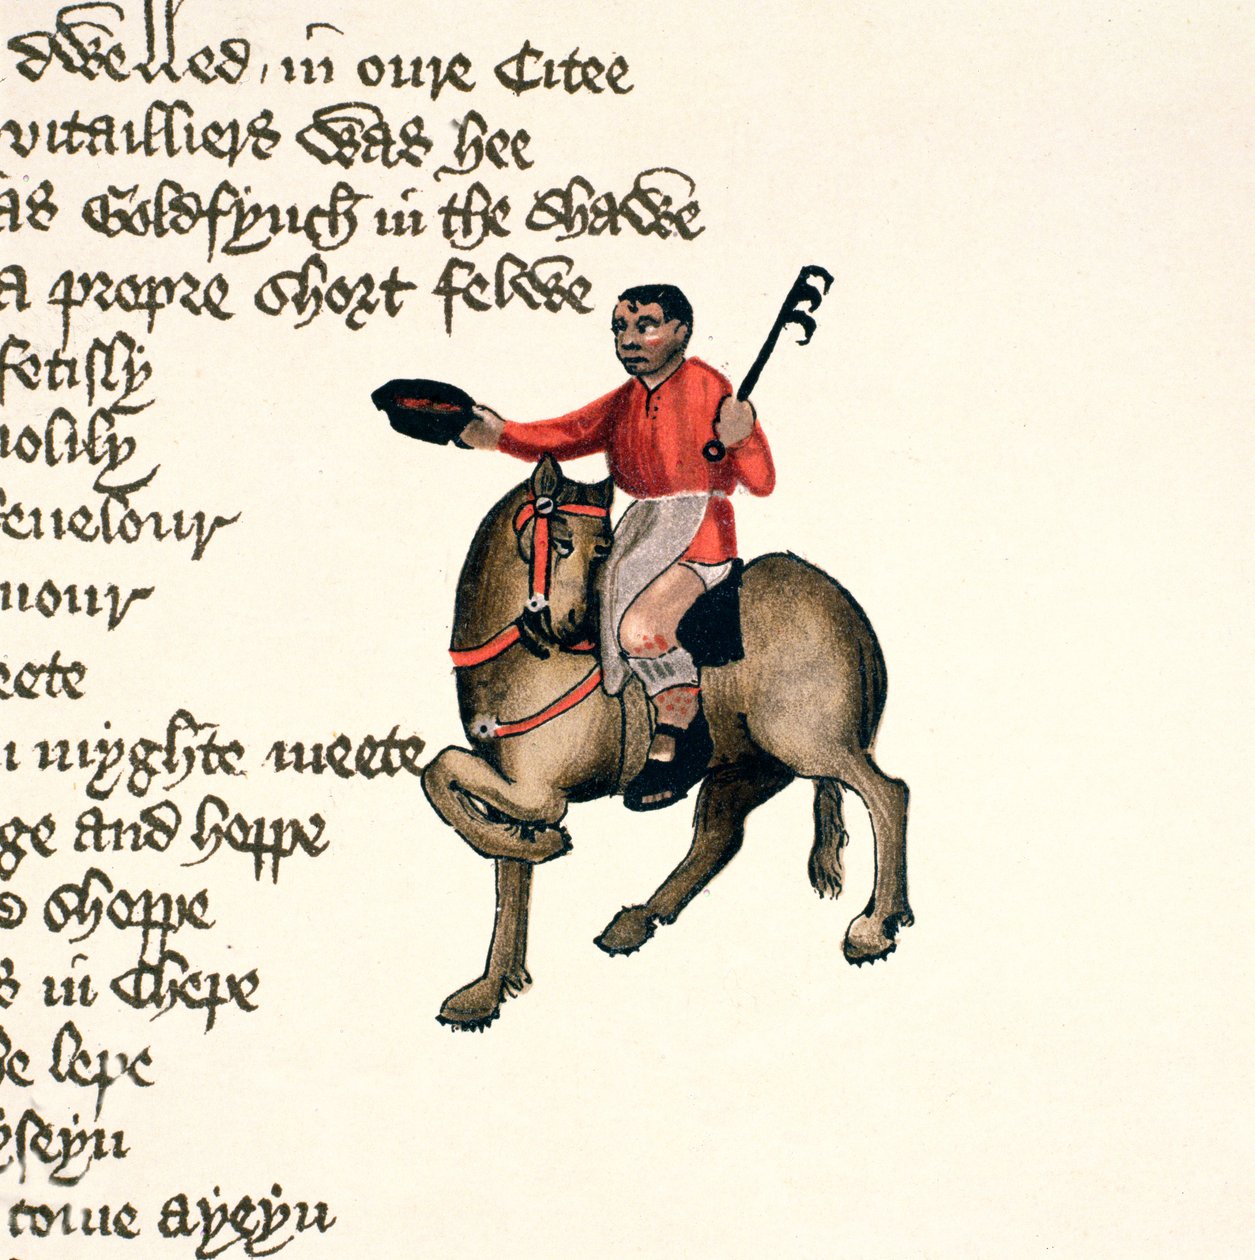 dwelled in oure Citee
vitailliers was hee
as Goldfynch in the shawe
a propre short felwe
fetisly
iolily
euelour
mour
eete
myghte meete
ge and hoppe
shoppe
s in Chepe
he lepe
yseyn
towne ayeyn